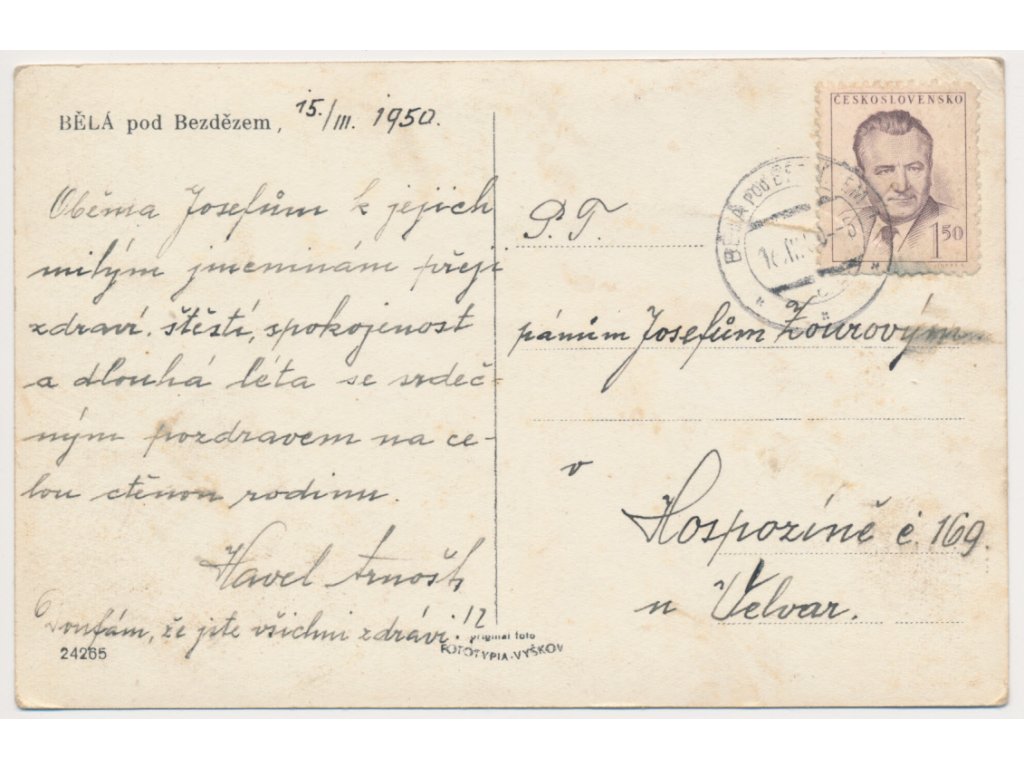 BĚLÁ pod Bezdězem, 15./III. 1950.
Oběma Josefům k jejich
milým jmeninám přeji
zdraví. štěstí, spokojenost
a dlouhá léta se srdeč-
ným pozdravem na ce-
lou ctěnou rodinu.
Havel Arnošt
Doufám, že jste všichni zdrávi!
24265
original foto
FOTOTYPIA-VYŠKOV
ČESKOSLOVENSKO
1 50
BĚLÁ POD
P. T.
pánům Josefům Zourovým
v
Hospozíně č. 169.
u Velvar.